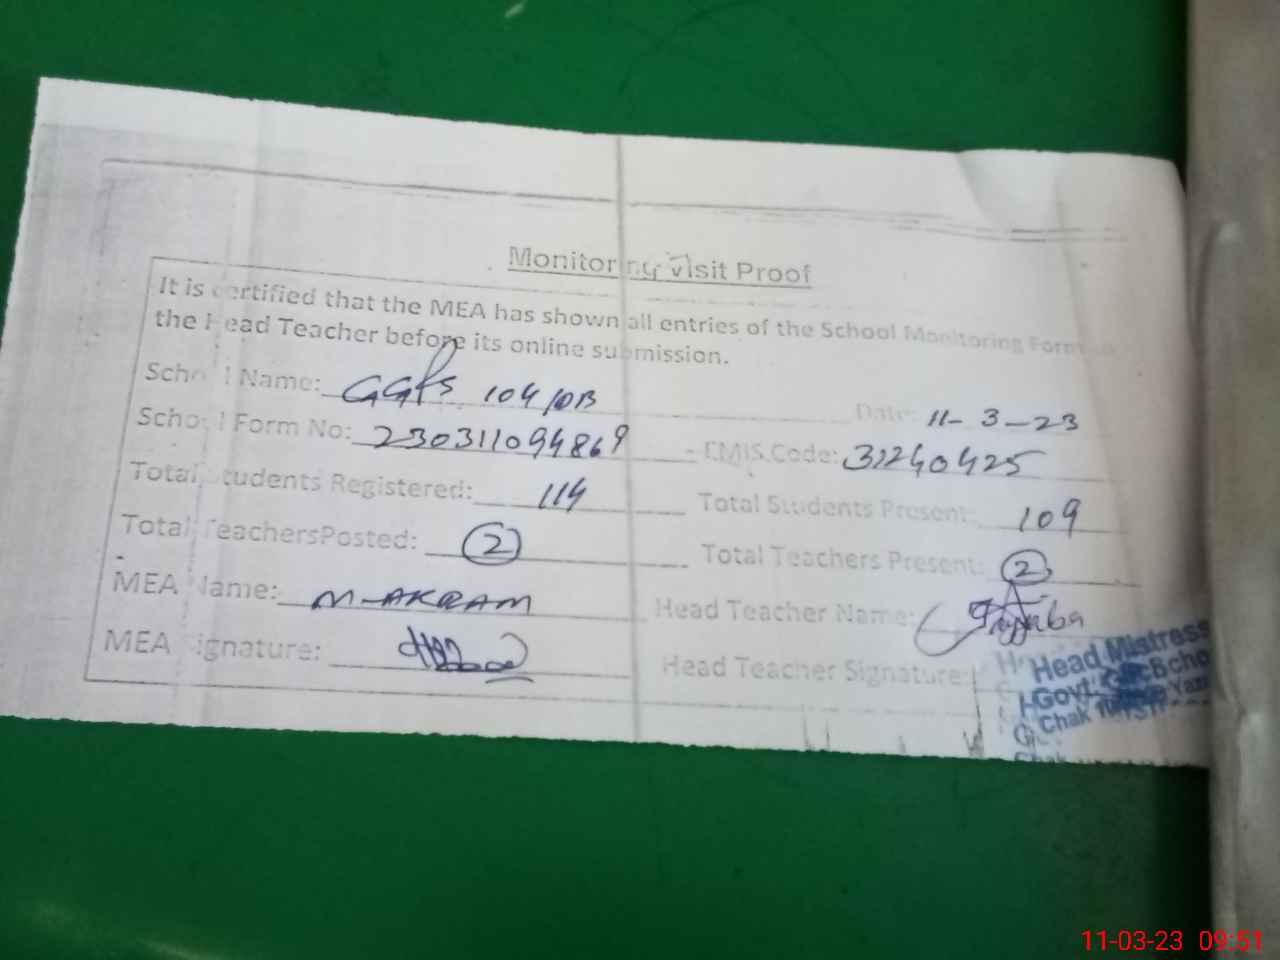 Monitoring Visit Proof
It is certified that the MEA has shown all entries of the School Monitoring Form to
the Head Teacher before its online submission.
School Name: GGPS 104/DB Date: 11-3-23
School Form No: 230311094869 EMIS Code: 31240425
Total Students Registered: 114 Total Students Present: 109
Total TeachersPosted: 2 Total Teachers Present: 2
MEA Name: M-AKRAM Head Teacher Name:
MEA Signature: Head Teacher Signature:
Head Mistress
Govt.
Chak
11-03-23 09:51